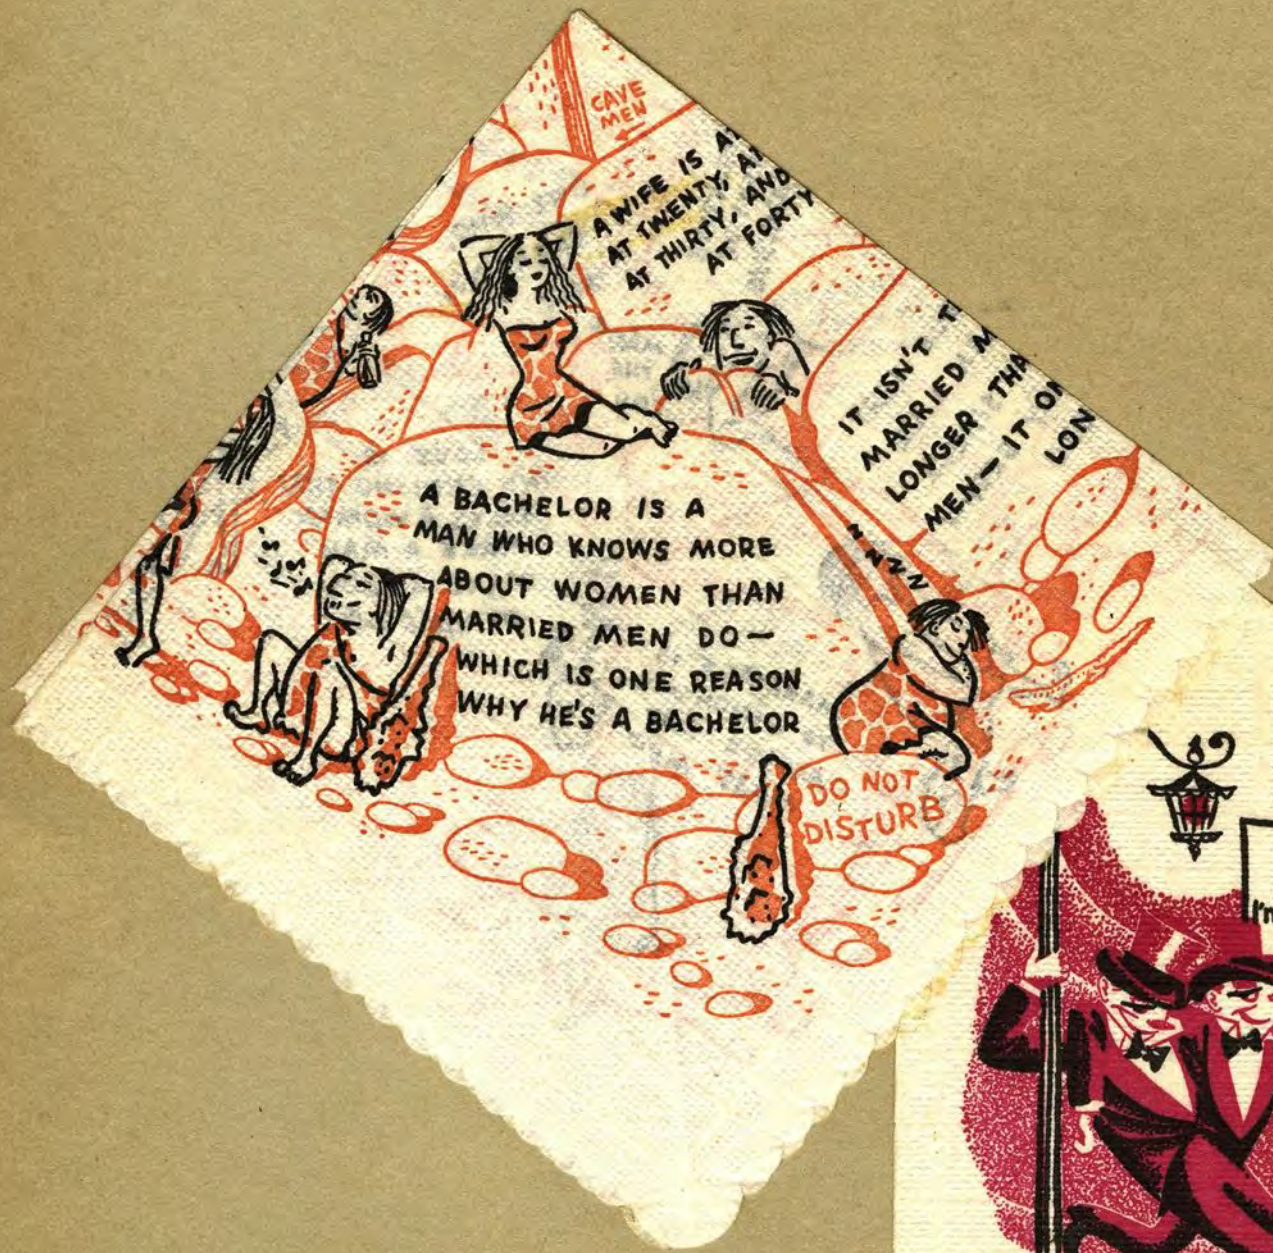 CAVE
MEN
A WIFE IS
AT TWENTY,
AT THIRTY, AND
AT FORTY
IT ISN'T
MARRIED
LONGER
MEN— IT
A BACHELOR IS A
MAN WHO KNOWS MORE
ABOUT WOMEN THAN
MARRIED MEN DO—
WHICH IS ONE REASON
WHY HE'S A BACHELOR
Z Z Z Z N
DO NOT
DISTURB